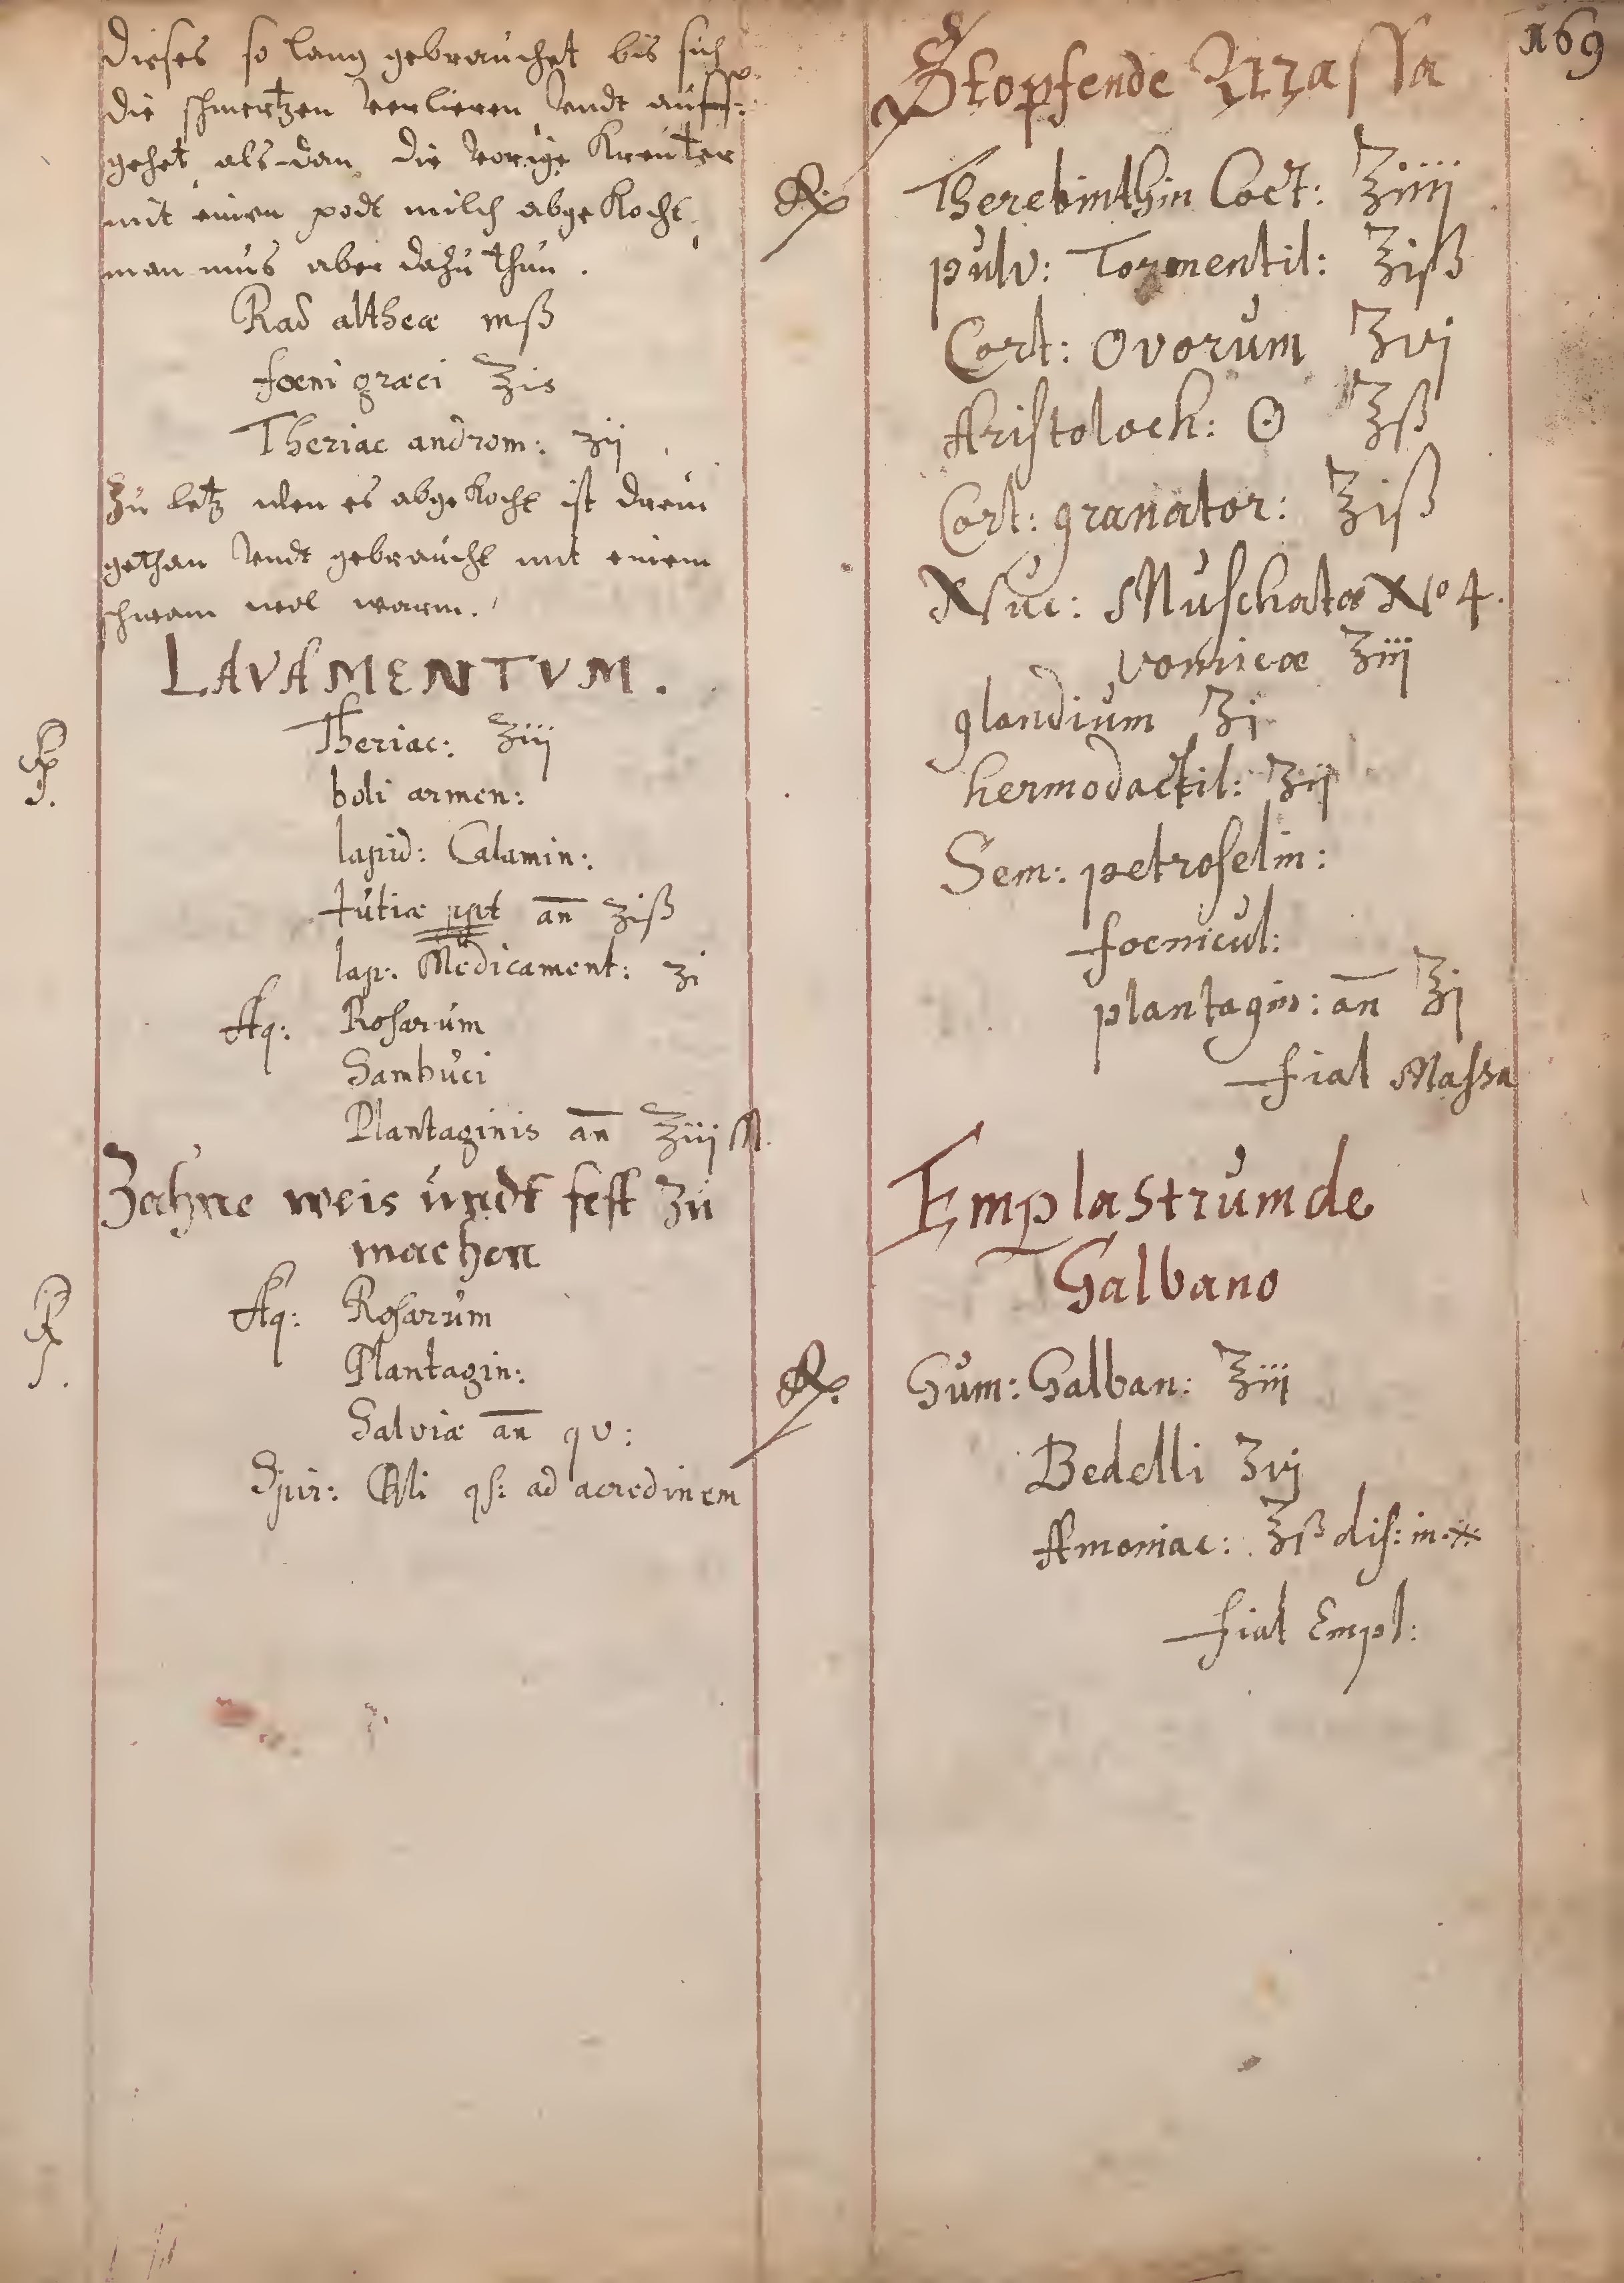 169
dieses so lang gebrauchet bis sich
die schmertzen verlieren vndt auff-
gehet, als dan die vorige Kreuter
mit einen podt milch abgekocht,
man mus aber dazu thun.
Rad altheæ mß
fœni græci ℥is
Theriac androm: ʒij
Zu letz wen es abgekocht ist drein
gethan vndt gebraucht mit einem
schwam wol warm.
LAVAMENTVM.
℞
Theriac: ℥iij
boli armen:
lapid: Calamin:
tutiæ ppt an ʒiß
lap: Medicament: ʒi
Aq: Rosarum
Sambuci
Plantaginis an ℥iij M.
Zahne weis undt fest zu
machen
℞
Aq: Rosarum
Plantagin:
Salviæ an qv:
Spir: qs: ad acredinem
Stopfende Massa
℞ Therebinthin Coct: ℥iiij
pulv: Tormentil: ℥iß
Cort: Ovorum ℥vj
Aristoloch: ʘ ℥ß
Cort: granator: ℥iß
Nuc: Muschatæ No 4.
vomicæ ℥iij
glandium ℥j
hermodactil: ℥ij
Sem: petroselin:
foenicul:
plantagin: an ℥j
fiat Massa
Emplastrum de
Galbano
℞. Gum: Galban: ℥iij
Bedelli ʒvj
Amoniac: ℥ß dis: in
fiat Empl: